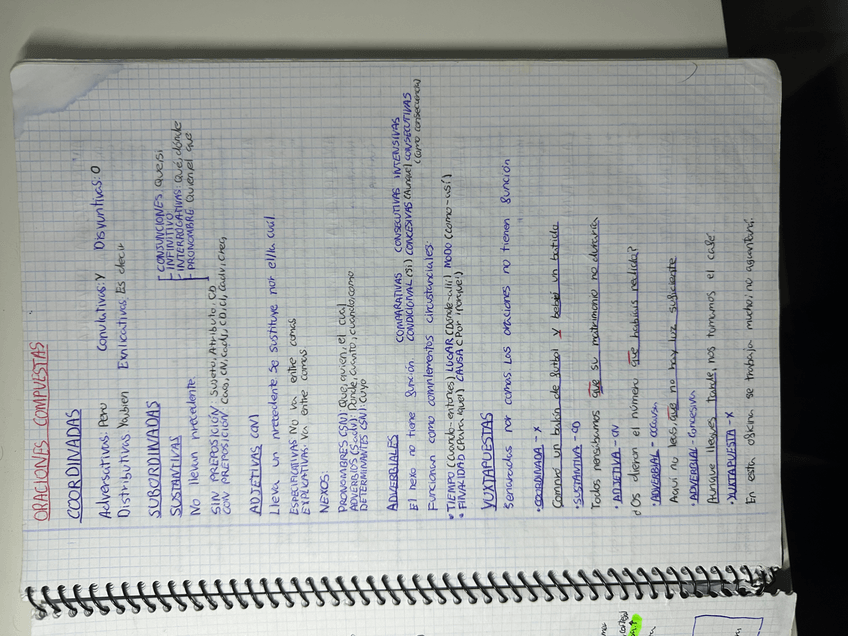 ORACIONES COMPUESTAS
COORDINADAS
Adversativas: Pero Copulativas: Y Disyuntivas: O
Distributivas: Ya, bien Explicativas: Es decir
SUBORDINADAS
SUSTANTIVAS
No llevan precedente
CONJUNCIONES: Que, si
INFINITIVO
INTERROGATIVAS: Qué, dónde
PRONOMBRE: Quien, el que
SIN PREPOSICIÓN: Sujeto, Atributo, CD
CON PREPOSICIÓN:
ADJETIVAS (CN)
Lleva un precedente. Se sustituye por el/la cual
ESPECIFICATIVAS: No va entre comas
EXPLICATIVAS: Va entre comas
NEXOS:
PRONOMBRES (SN): Que, quien, el cual
ADVERBIOS (SAdv): Donde, cuanto, cuando, como
DETERMINANTES (SN): Cuyo
ADVERBIALES
El nexo no tiene función.
COMPARATIVAS CONSECUTIVAS INTENSIVAS
CONDICIONAL (Si) CONCESIVAS (Aunque) CONSECUTIVAS
(como consecuencia)
Funcionan como complementos circunstanciales:
• TIEMPO (Cuando-entonces) LUGAR (Donde-allí) MODO (como-así)
• FINALIDAD (Para que) CAUSA (Por/porque)
YUXTAPUESTAS
Separadas por comas. Las oraciones no tienen función
• COORDINADA - X
Compró un balón de fútbol y bebió un batido
• SUSTANTIVA - CD
Todos pensábamos que su matrimonio no duraría
• ADJETIVA - CN
¿Os dieron el número que habíais pedido?
• ADVERBIAL - Causa
Aquí no leas, que no hay luz suficiente
• ADVERBIAL - Concesiva
Aunque llegues tarde, nos tomamos el café
• YUXTAPUESTA - X
En esta oficina se trabaja mucho; no aguantaré.